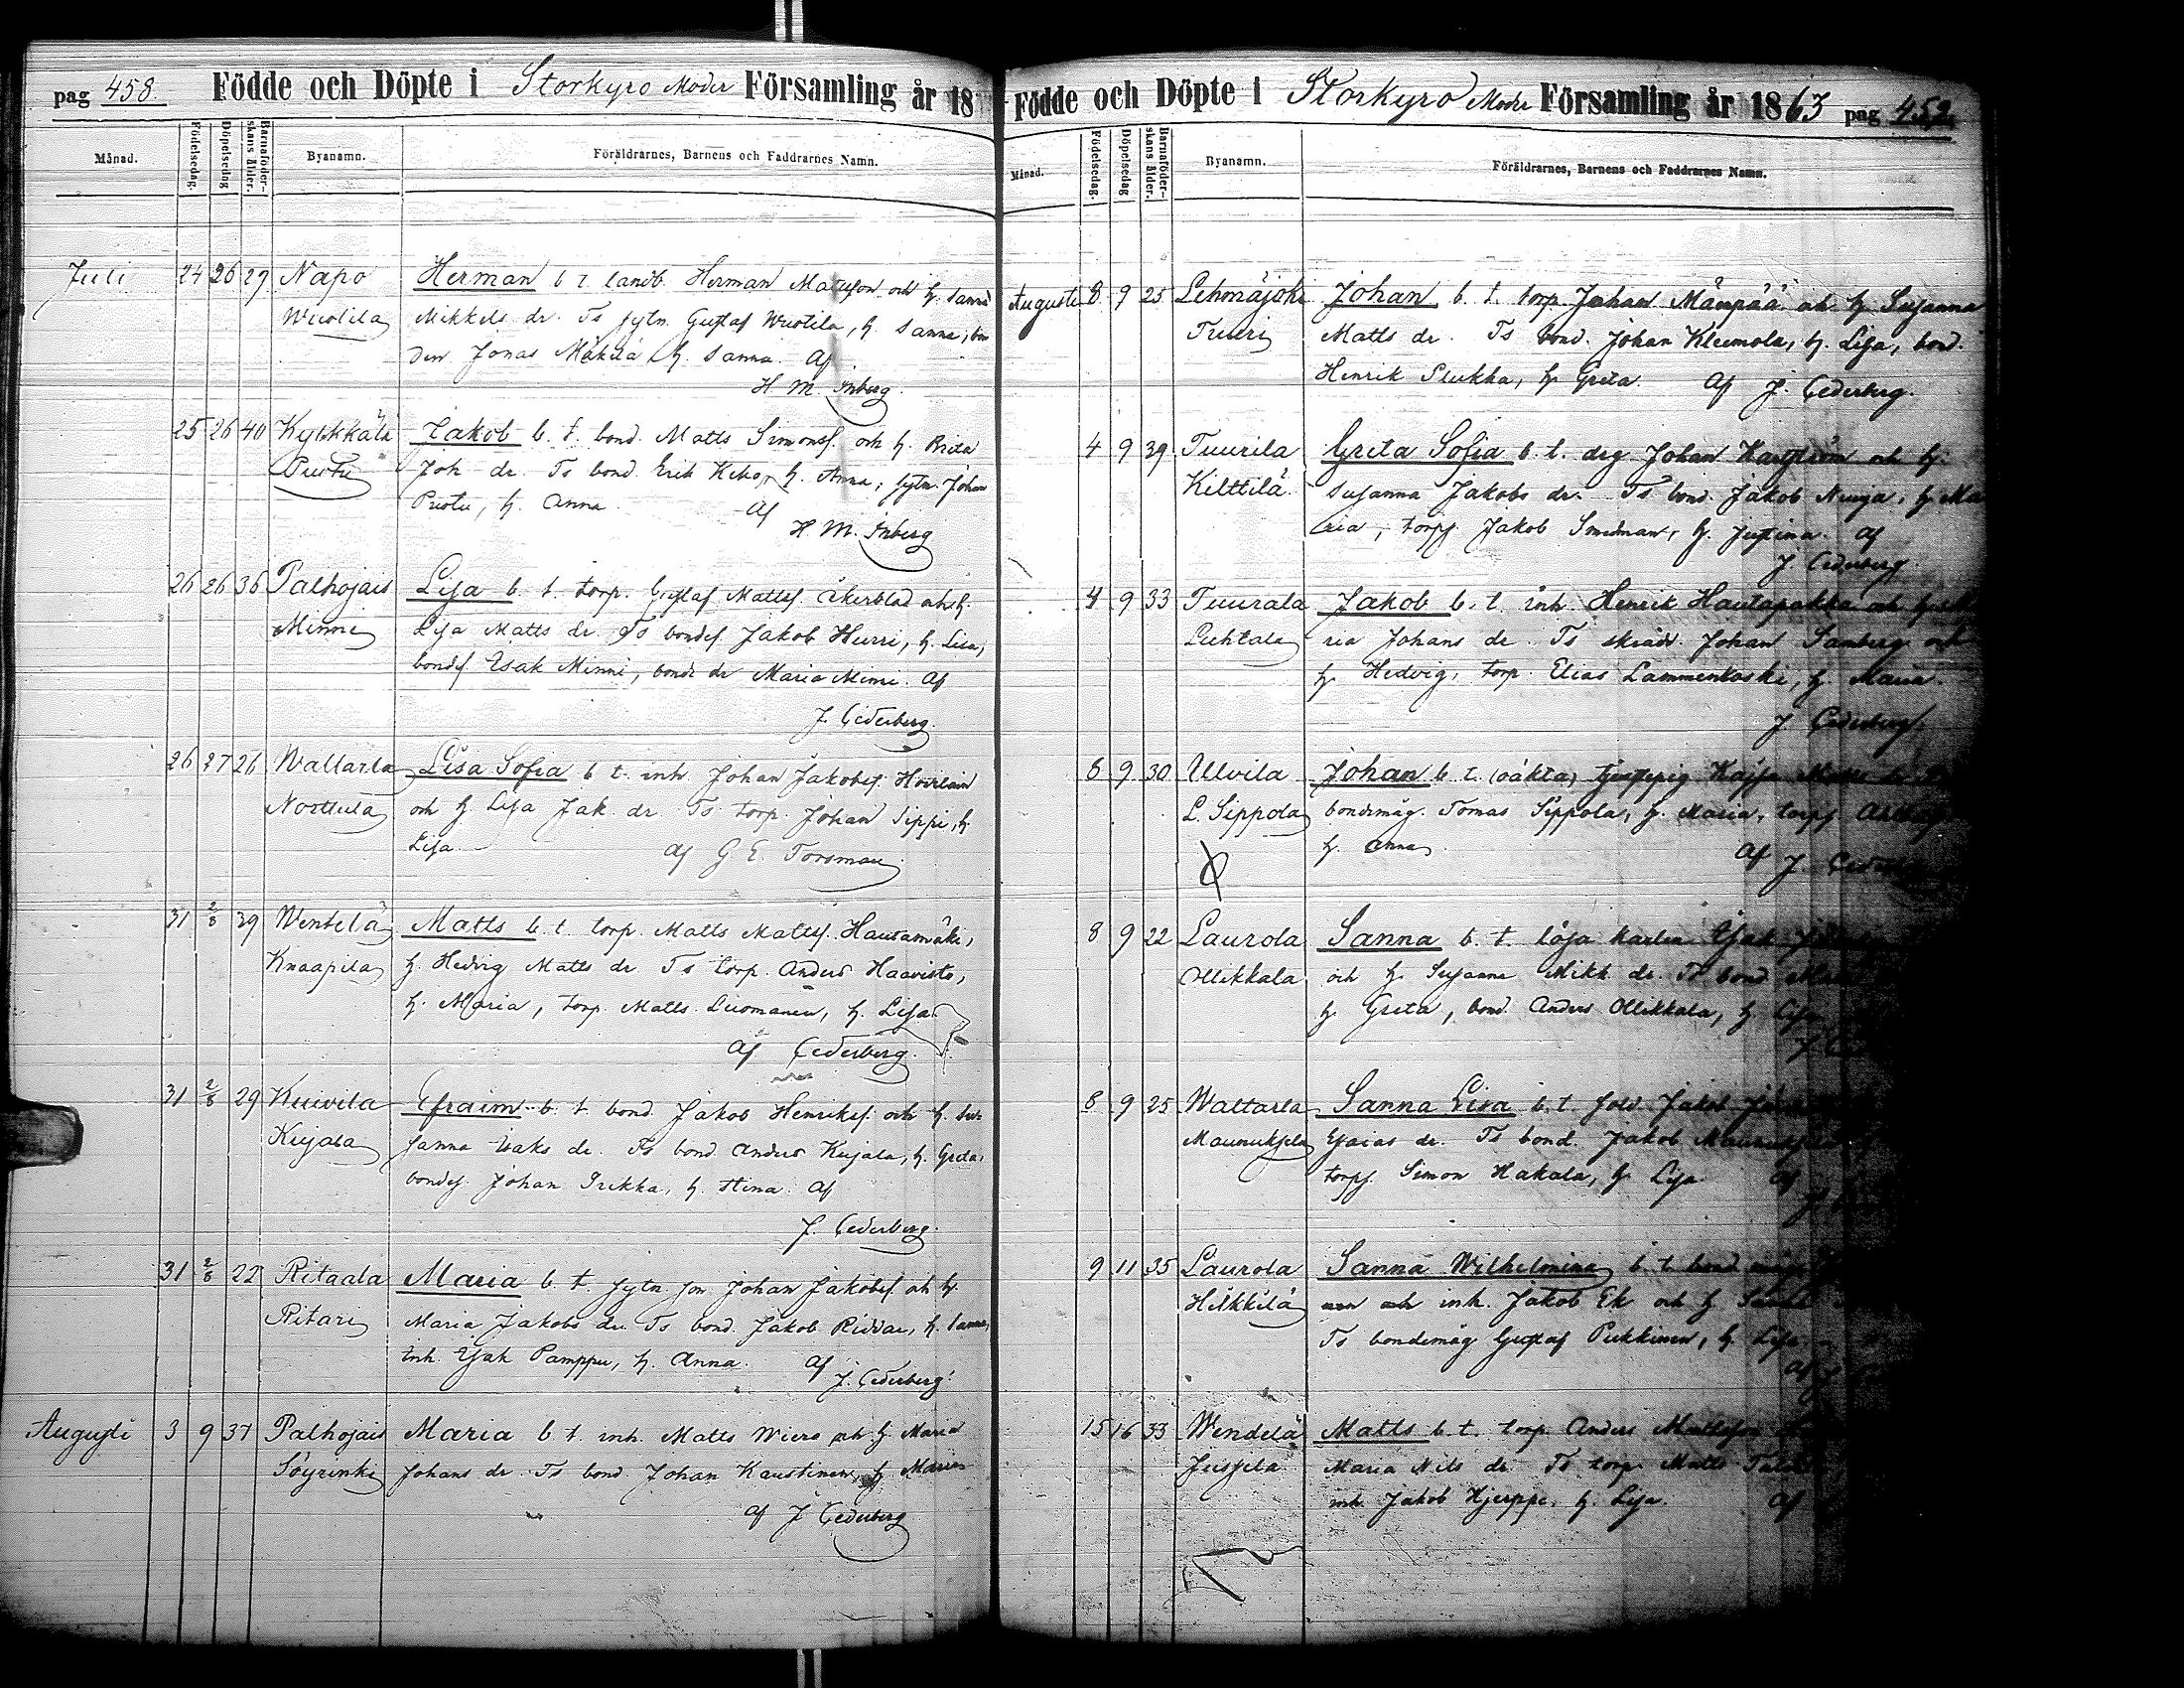 pag 458.
Födde och Döpte i Storkyro Moder Församling år 18
Månad. Födelsedag. Döpelsedag Barnaföderskans ålder. Byanamn. Föräldrarnes, Barnens och Faddrarnes Namn.
Juli 24 26 29 Napo Herman b t. landb. Herman Matsson och h. Sanna
Wuotila Mikkels dr. Ts sytn. Gustaf Wuotila, h. Sanna; bon
den Jonas Mäkilä h. Sanna. Af
H. M. Inberg.
25 26 40 Kylkkälä Jakob b. t. bond. Matts Simonss. och h. Brita
Joh dr. Ts bond. Erik h. Anna; sytn. Johan
h. Anna. Af
H. M. Inberg
26 26 36 Palhojais Lisa b. t. torp. Gustaf Mattss. Åkerblad och h.
Minni Lisa Matts dr. Ts bondes. Jakob Hurri, h. Lisa,
bondes. Esak Minni, bonde dr Maria Minni. Af
J. Cederberg.
26 27 26 Waltarla Lisa Sofia b t. inh. Johan Jakobss.
och h Lisa Jak. dr. Ts torp. Johan Sippi, h.
Lisa. Af G. E. Forsman
31 2/8 39 Wentelä Matts b. t. torp. Matts Mattss. Hautamäki,
Knaapila h. Hedvig Matts dr. Ts torp. Anders Haavisto,
h. Maria, torp. Matts Luomanen, h. Lisa.
Af Cederberg.
31 2/8 29 Kuivila Efraim b. t. bond. Jakob Henrikss. och h. Su-
Kujala sanna Isaks dr. Ts bond. Anders Kujala, h. Greta,
bondes. Johan h. Stina. Af
J. Cederberg.
31 2/8 22 Ritaala Maria b. t. sytn. son Johan Jakobss. och h.
Ritari Maria Jakobs dr. Ts bond. Jakob Riddar, h. Sanna,
inh. Esak Pamppu, h. Anna. Af
J. Cederberg.
Augusti 3 9 37 Palhojais Maria b t. inh. Matts och h. Maria
Söyrinki Johans dr. Ts bond. Johan Kaustinen, h Maria
Af J Cederberg
Födde och Döpte i Storkyro Moder Församling år 1863 pag 459
Månad. Födelsedag. Döpelsedag Barnaföderskans ålder. Byanamn. Föräldrarnes, Barnens och Faddrarnes Namn.
Augusti 8 9 25 Lehmäjoki Johan b. t. torp. Johan Mäenpää och h. Susanna
Tuuri Matts dr. Ts bond. Johan Kleemola, h. Lisa, bond.
Henrik h. Greta. Af J. Cederberg.
4 9 39 Tuurila Greta Sofia b. t. drg Johan och h.
Kilttilä Susanna Jakobs dr. Ts bond. Jakob h. Ma
ria, torps. Jakob Smedman, h. Justina. Af
J. Cederberg.
4 9 33 Tuurala Jakob b. t. inh. Henrik Hautapakka och h. Ma
Luhtala ria Johans dr. Ts skrädd. Johan Samberg och
h. Hedvig, torp. Elias Lammenkoski, h. Maria.
J. Cederberg.
6 9 30 Ulvila Johan b. t. (oäkta) Kajsa Matts dr
L. Sippola bondemåg. Tomas Sippola, h. Maria, torps.
h. Anna Af J. Cederberg
8 9 22 Laurola Sanna b. t. lösa karlen Esak
Ollikkala och h. Susanna Mikk. dr. Ts bond.
h. Greta, bond. Anders Ollikkala, h Lisa
J.
8 9 25 Waltarla Sanna Lisa b. t. sold. Jakob
Maunuksela Esaias dr. Ts bond. Jakob Maunuksela
torps. Simon Hakala, h. Lisa Af
J.
9 11 35 Laurola Sanna Wilhelmina b. t. bond. måg
Hilkkilä och inh. Jakob Ek och h Sanna
Ts bondemåg Gustaf Pukkinen, h. Lisa
Af J.
15 16 33 Wendelä Matts b. t. torp. Anders Mattsson
Maria Nils dr. Ts torp. Matts
inh. Jakob Hjerppe, h. Lisa. Af